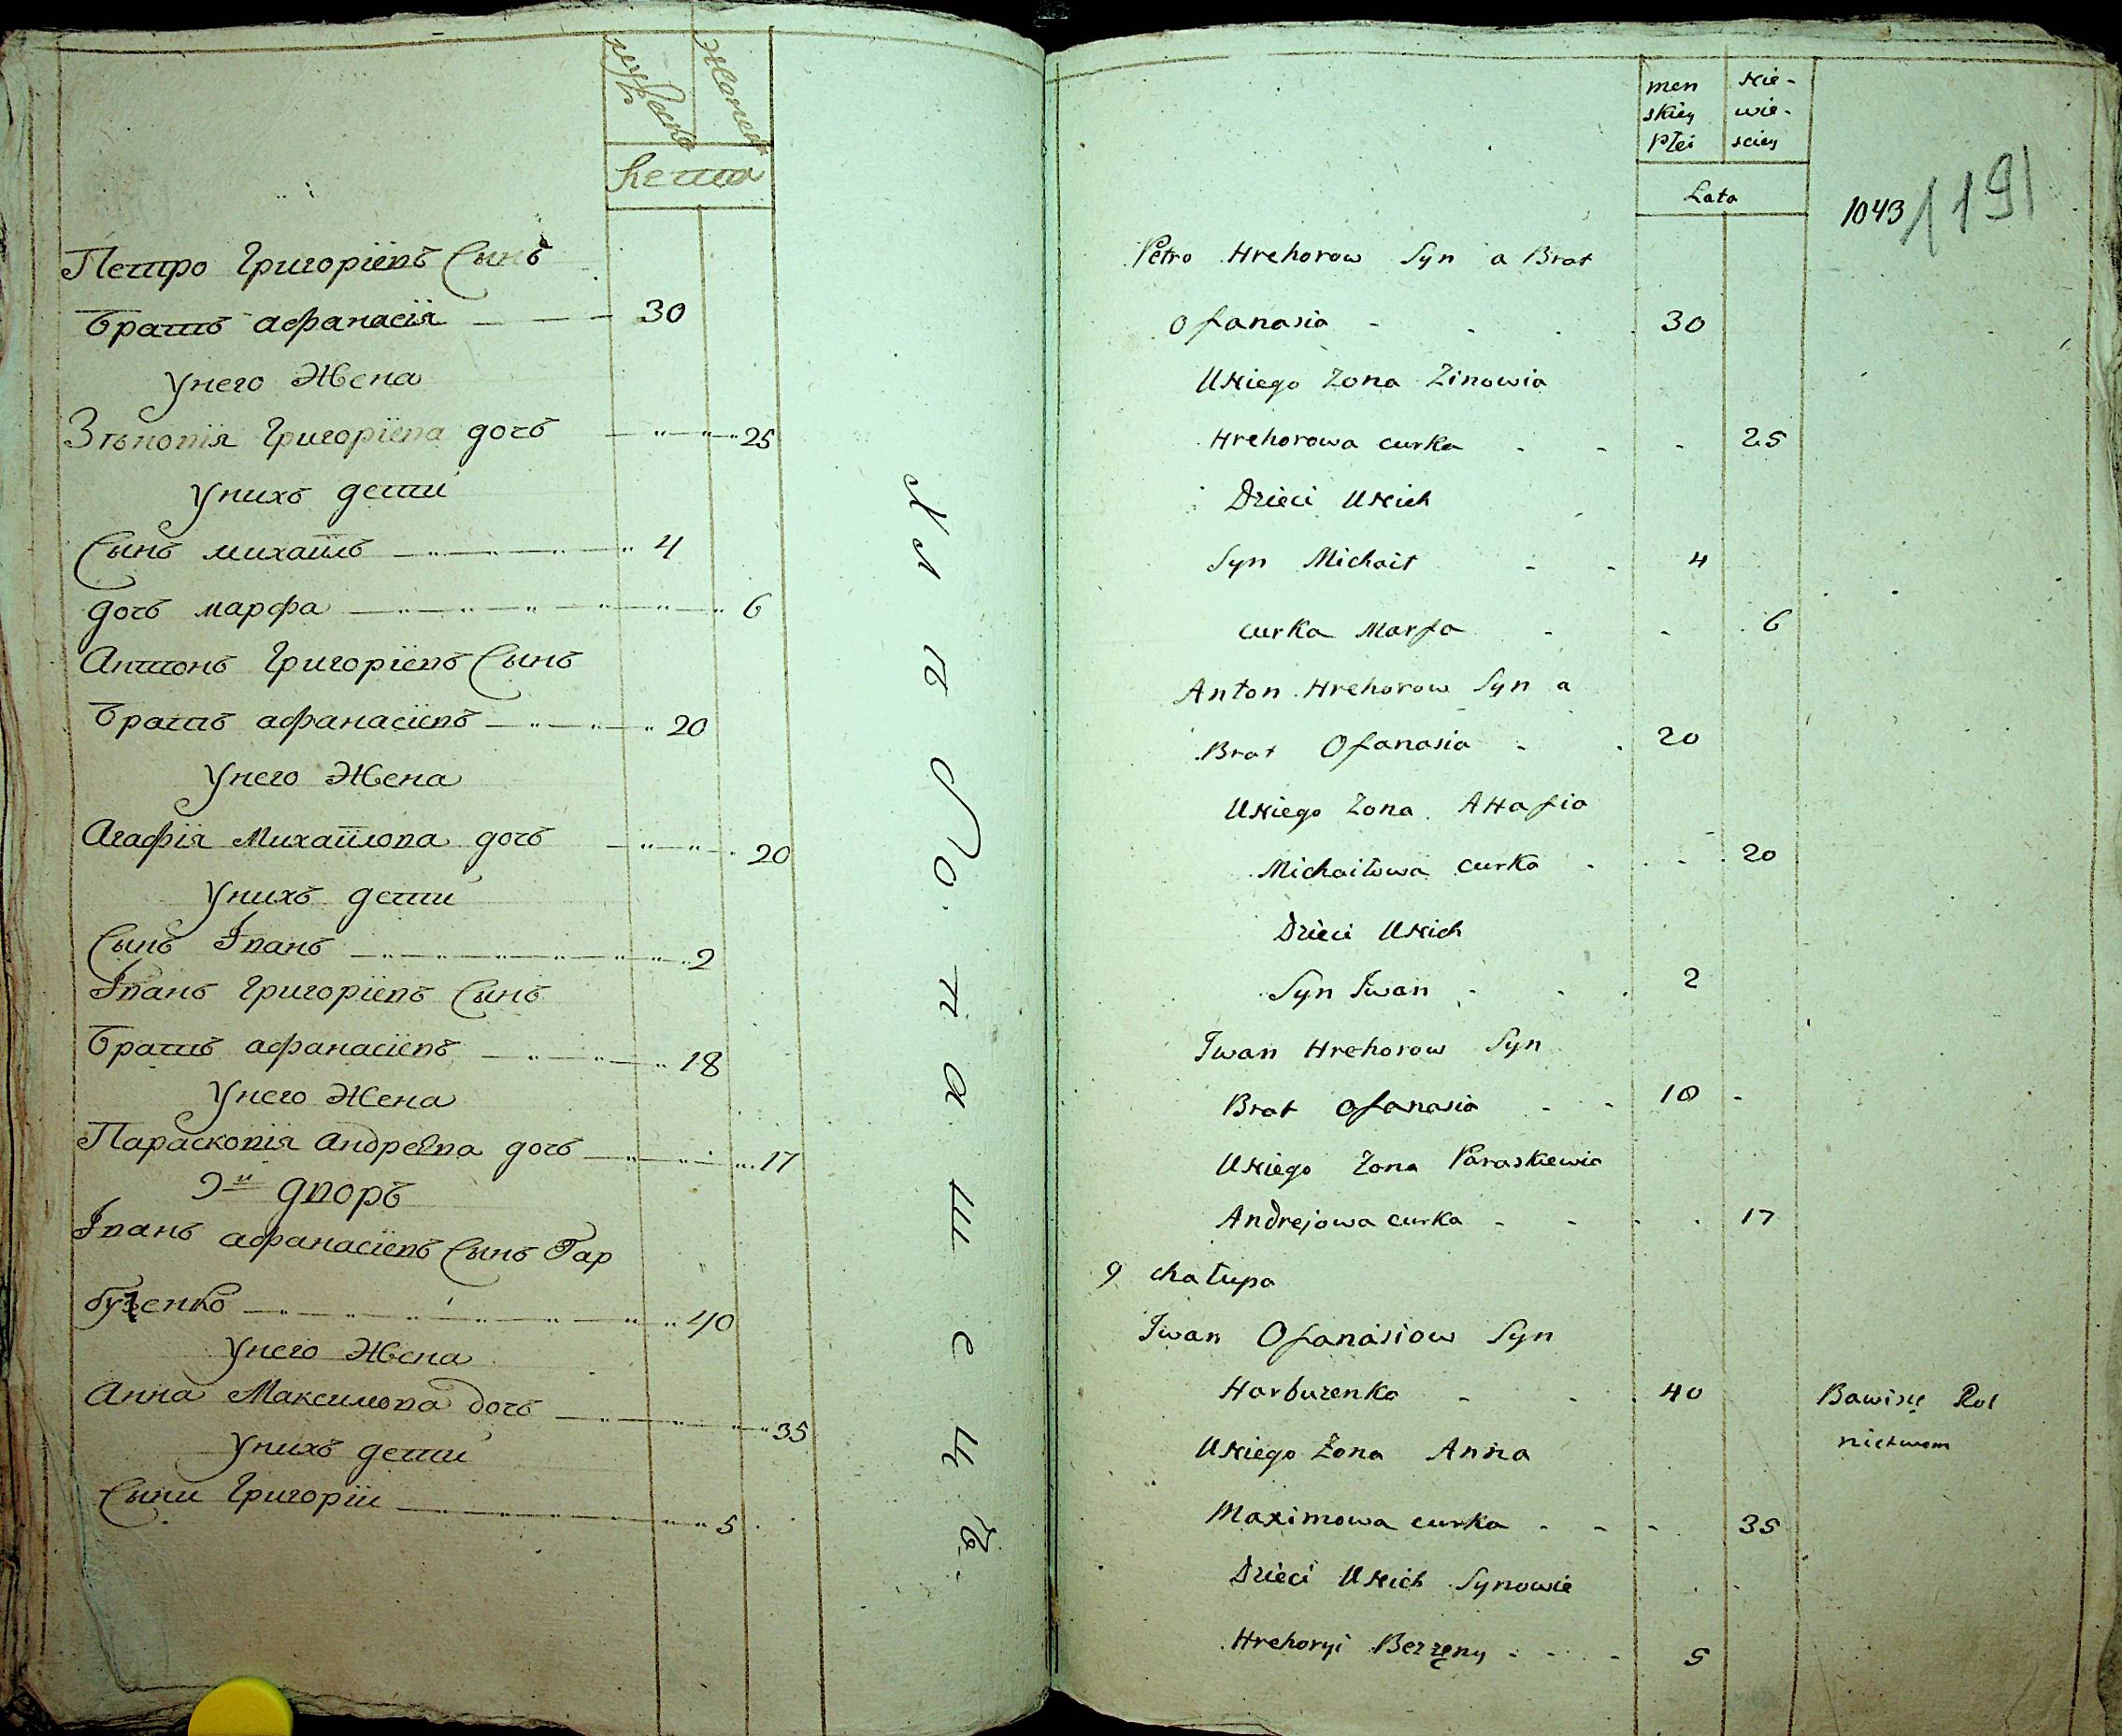 мужеска
женска
лета
Петро Григоріевъ Сынъ
братъ афанасія 30
Унего Жена
Зѣновія Григоріева дочь 25
Унихъ дети
Сынъ михаилъ 4
дочь марфа 6
Антонъ Григоріевъ Сынъ
братъ афанасіевъ 20
Унего Жена
Агафія Михаилова дочь 20
Унихъ дети
Сынъ Іванъ 2
Іванъ Григоріевъ Сынъ
братъ афанасіевъ 18
Унего Жена
Парасковія андреева дочь 17
9й дворъ
Іванъ афанасіевъ Сынъ Гар
бузенко 40
Унего Жена
Анна Максимова дочь 35
Унихъ дети
Сыни Григоріи 5
men Nie-
skiey wie-
Płci sciey
Lata
1043 191
Petro Hrehorow Syn a Brat
Ofanasia 30
Uniego Zona Zinowia
Hrehorowa curka 25
Dzieci Unich
Syn Michaił 4
curka Marfa 6
Anton Hrehorow Syn a
Brat Ofanasia 20
Uniego Zona AHafia
Michaiłowa curka 20
Dzieci Unich
Syn Iwan 2
Iwan Hrehorow Syn
Brat Ofanasia 18
Uniego Zona Paraskiewia
Andrejowa curka 17
9 chałupa
Iwan Ofanasiow Syn
Harbuzenko 40 Bawisię Rol
nictwem
Uniego Zona Anna
Maximowa curka 35
Dzieci Unich Synowie
Hrehoryi Bezzęny 5